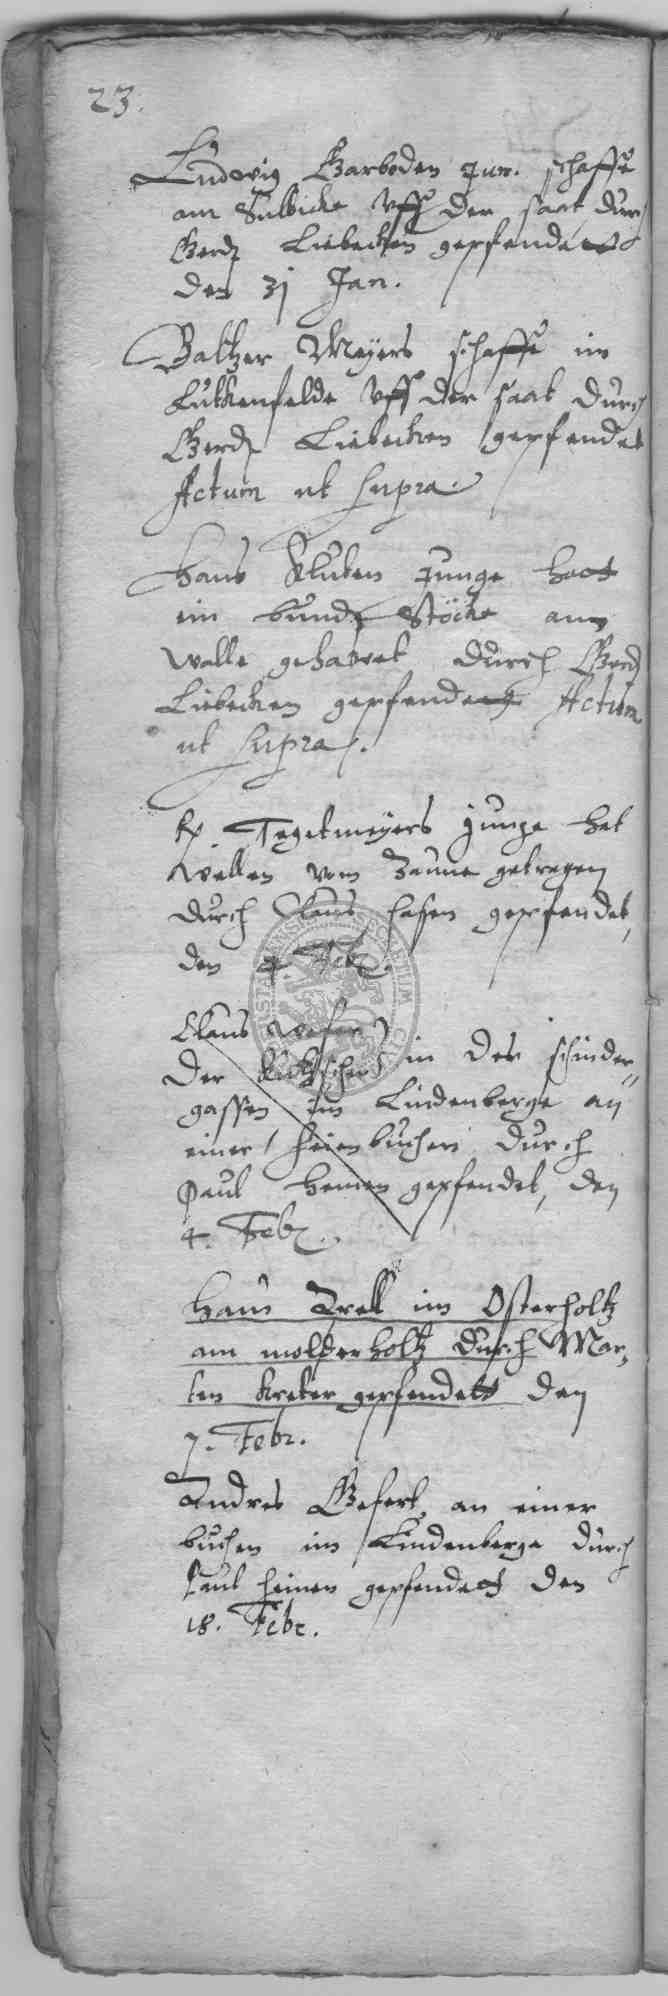 23.
Ludowig Garboden Jun. schaffe
am Sulbicke uff der saat durch
Gerdt Liebecken gepfendet
den 31 Jan.
Baltzer Meyers schaffe im
Lutkenfelde uff der saat durch
Gerdt Liebecken gepfendet
Actum ut supra.
Hans Kluken Junge hatt
ein bundt Stöcke am
walle gehawet durch Gerdt
Liebecken gepfendett Actum
ut supra.
Tegetmeyers Junge het
wellen vom Zaune getragen
durch Claus hasen gepfendet,
den 4. Feb.
Claus
Der in der schinder
gassen im Lindenberge an
einer heienbuchen durch
Paul Heinen gepfendet, den
4. Feb.
Hans im Osterholtz
am molderholtz durch Mar
ten Kreker gepfendett den
7. Febr.
Andres Gefert an einer
buchen im Lindenberge durch
Paul heinen gepfendett den
18. Febr.